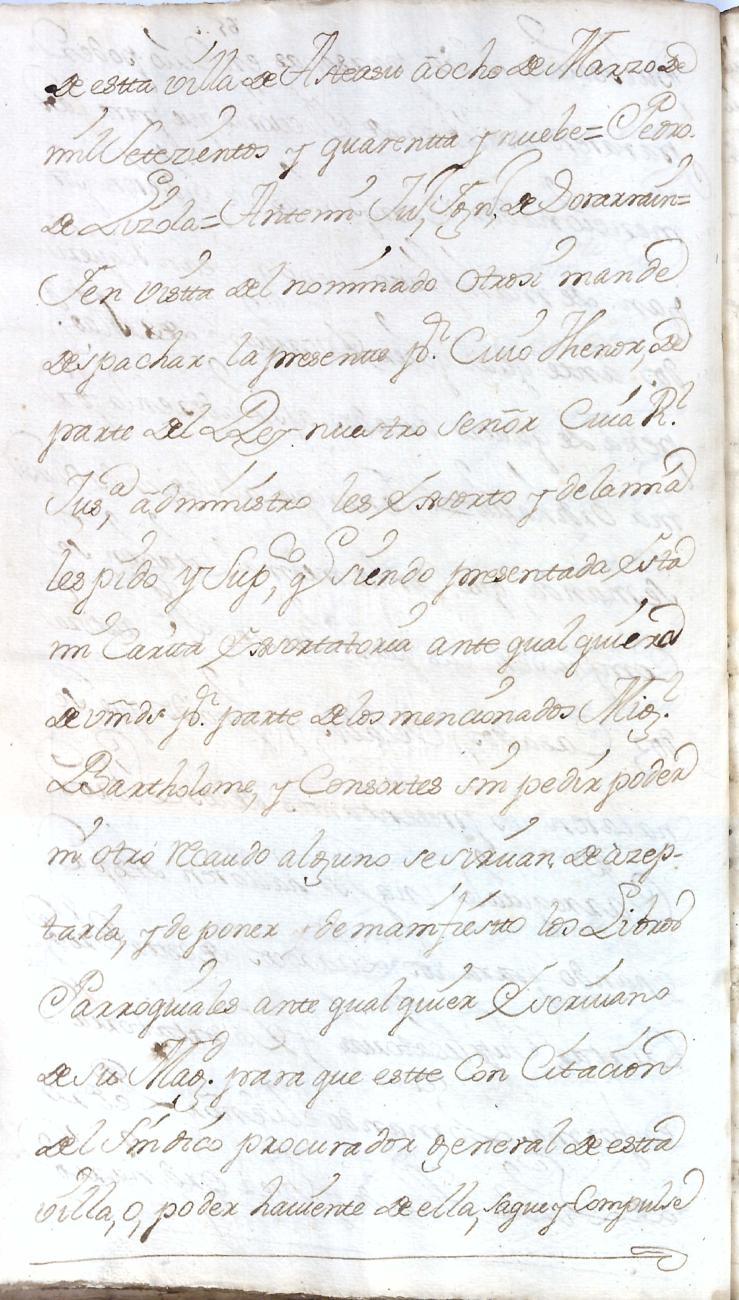 de estta villa de Ataun a ocho de Marzo de
mil Setezientos y quarentta y nuebe= Pedro
de Lizola= Antemi Juº Ygnº de Dorarrain=
Y en vistta del nominado Otrosi mande
despachar la presente pr. Cuio thenor, de
parte del Rey nuestro señor Cuia Rl
Jusª administro les Exsorto y de la mia
les pido y Supco, q Siendo presentada Esta
mi Cartta Exsortatoria ante qual quiera
de vmds pr. parte de los mencionados Migl
Bartholome, y Consortes sin pedir poder
ni otro recaudo alguno se siruan, de azep-
tarla, y de poner de manifiestto los Libros
Parroquiales ante qual quier Escriuano
de su Magd. para que estte Con Citacion
del Sindico procurador general de estta
villa, o, poder hauiente de ella, saque y Compulse